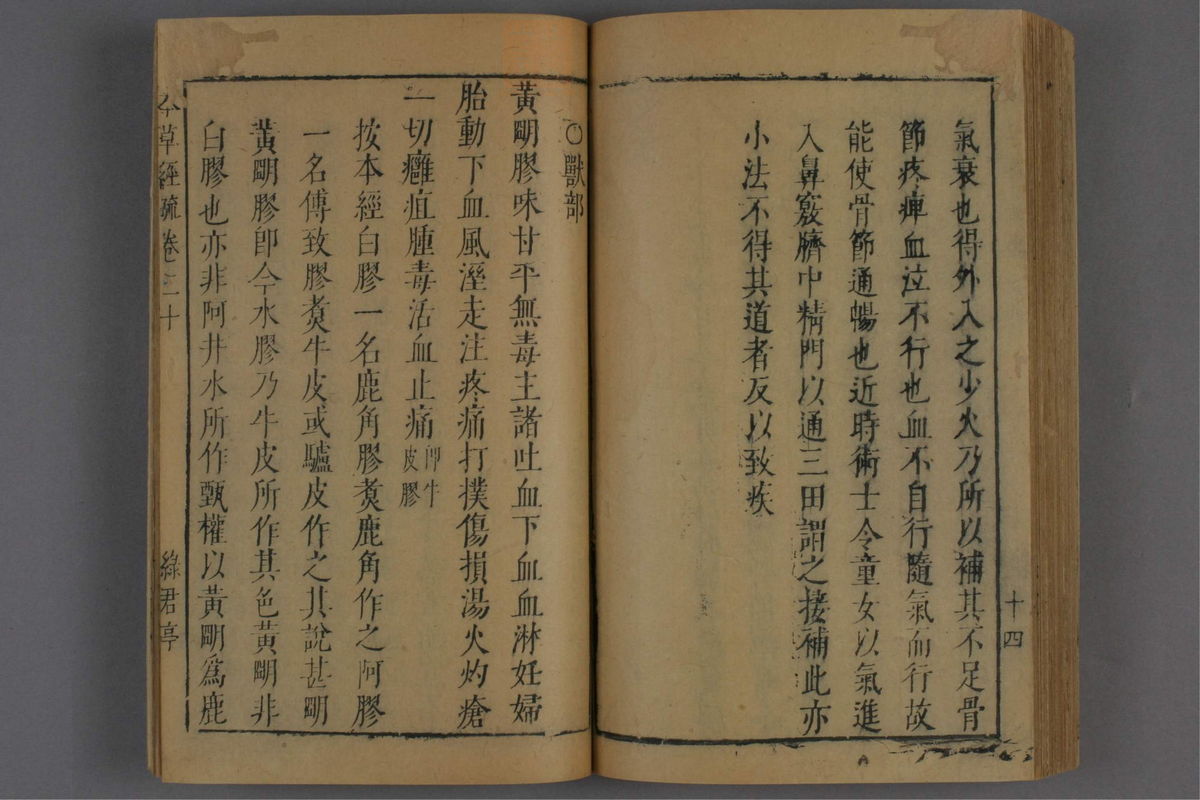 氣衰也得外入之少火乃所以補其不足骨
節疼痺血泣不行也血不自行隨氣而行故
能使骨節通暢也近時術士令童女以氣進
入鼻竅臍中精門以通三田謂之接補此亦
小法不得其道者反以致疾
十四
〇獸部
黃朙膠味甘平無毒主諸吐血下血血淋妊婦
胎動下血風溼走注疼痛打撲傷損湯火灼瘡
一切癰疽腫毒活血止痛卽牛皮膠
按本經白膠一名鹿角膠煑鹿角作之阿膠
一名傅致膠煑牛皮或驢皮作之其說甚朙
黃朙膠卽今水膠乃牛皮所作其色黃朙非
白膠也亦非阿井水所作甄權以黃朙爲鹿
本草經疏 卷三十 綠君亭